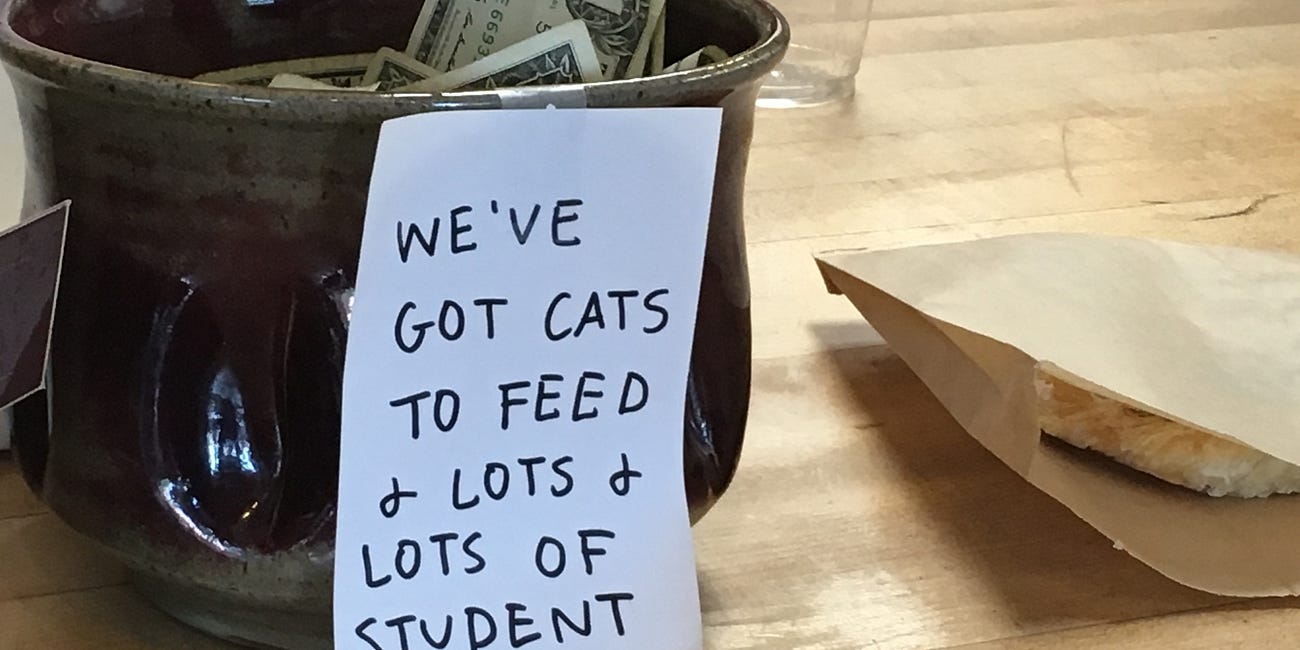 WE'VE
GOT CATS
TO FEED
& LOTS &
LOTS OF
STUDENT